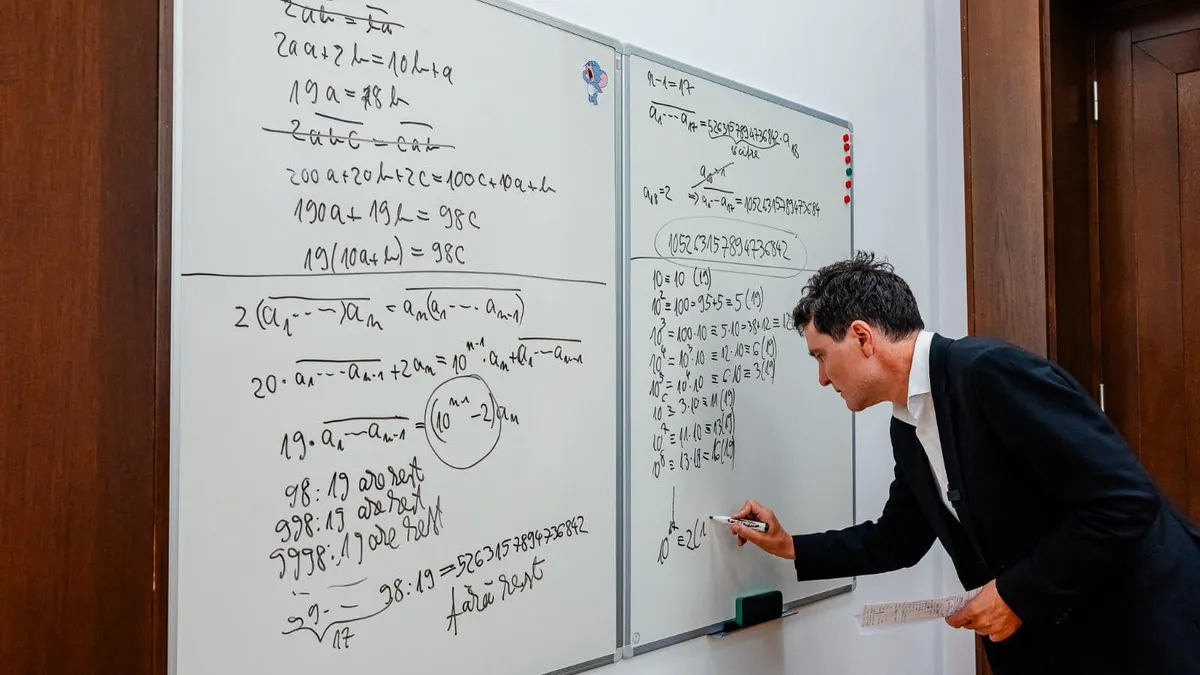 2ab = ba
20a+2b=10b+a
19a=8b
2abc = cab
200a+20b+2c=100c+10a+b
190a+19b=98c
19(10a+b)=98c
2(a₁---)aₙ=aₙ(a₁---aₙ₋₁)
20·a₁---aₙ₋₁+2aₙ=10ⁿ⁻¹·aₙ+a₁---aₙ₋₁
19·a₁---aₙ₋₁=(10ⁿ⁻¹-2)aₙ
98:19 are rest
998:19 are rest
9998:19 are rest
99---98:19=5263157894736842
17
fără rest
n-1=17
a₁---a₁₇=5263157894736842·a₁₈
a₁₈=1
a₁₈=2 ⇒a₁--a₁₇=10526315789473684
105263157894736842
10≡10 (19)
10²=100=95+5≡5(19)
10³=100·10≡5·10=38+12≡12
10⁴=10³·10≡12·10≡6(19)
10⁵=10⁴·10≡6·10≡3(19)
10⁶≡3·10≡11(19)
10⁷≡11·10≡15(19)
10⁸≡13·10≡16(19)
10¹⁷≡2(1